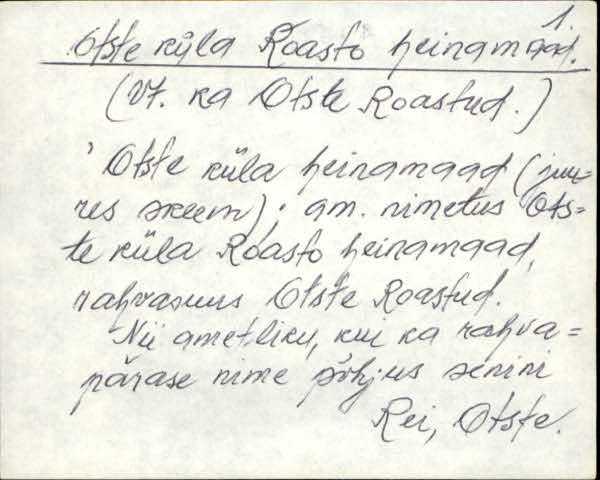 1.
Otste küla Roasto heinamaad.
(Vt. ka Otste Roastud.)
Otste küla heinamaad (juu=
res skeem); am. nimetus Ots=
te küla Roasto heinamaad,
rahvasuus Otste Roastud.
Nii ametliku, kui ka rahva=
pärase nime põhjus senini
Rei, Otste.